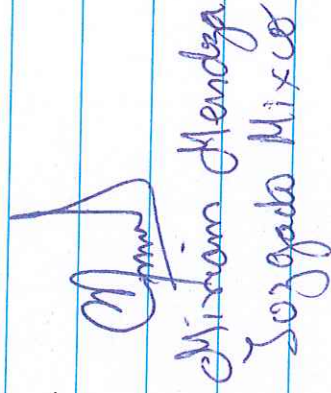 Miriam Mendoza
Jozgado Mixco